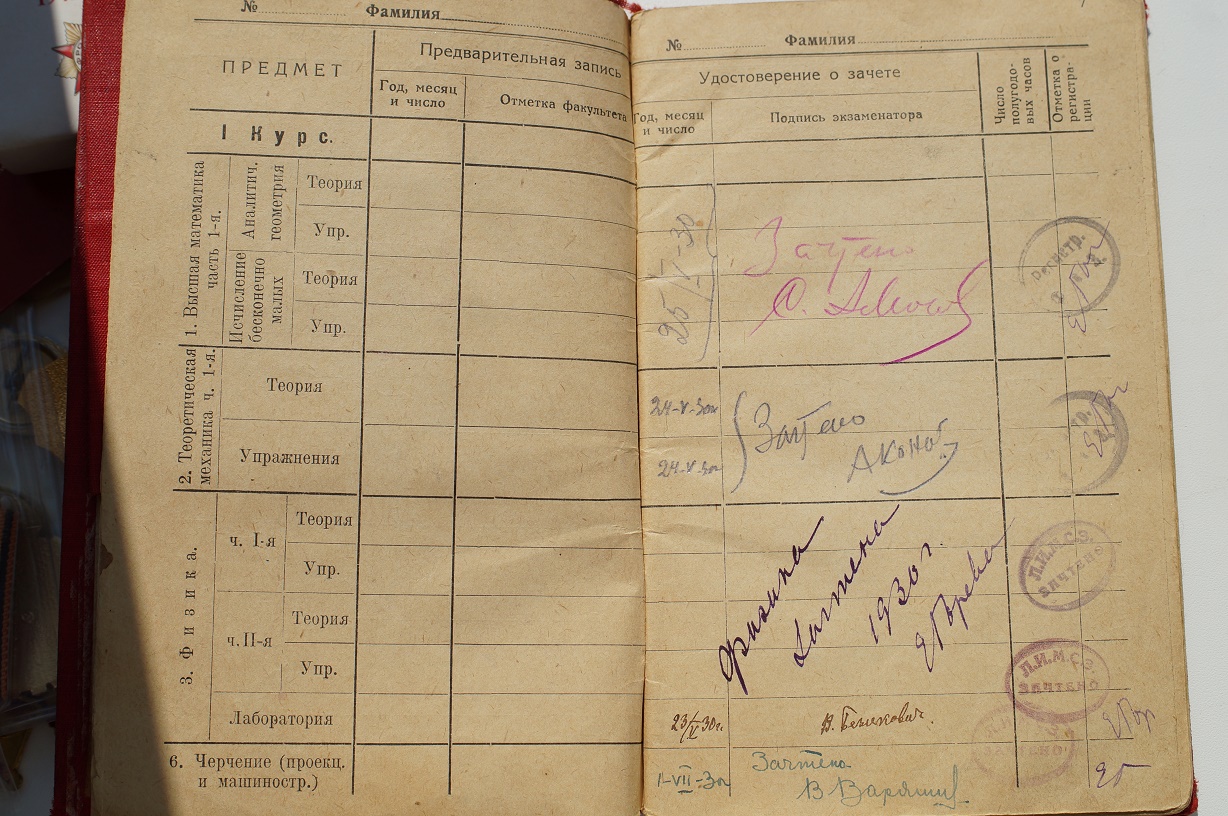 № Фамилия
ПРЕДМЕТ
Предварительная запись
Год, месяц
и число
Отметка факультета
I Курс.
1. Высшая математика
часть 1-я.
Аналитич.
геометрия
Теория
Упр.
Исчисление
бесконечно
малых
Теория
Упр.
2. Теоретическая
механика ч. 1-я.
Теория
Упражнения
3. Физика.
ч. I-я
Теория
Упр.
ч. II-я
Теория
Упр.
Лаборатория
6. Черчение (проекц.
и машиностр.)
№ Фамилия
Удостоверение о зачете
Год, месяц
и число
Подпись экзаменатора
Число
полугодо-
вых часов
Отметка о
регистра-
ции
Зачтено
24-V-30г
Зачтено
24-V-30г
физика
зачтена
1930 г.
Л.И.М.С.Э.
ЗАЧТЕНО
Л.И.М.С.Э.
ЗАЧТЕНО
23/V 30г.
ЗАЧТЕНО
1-VII-30г
Зачтено